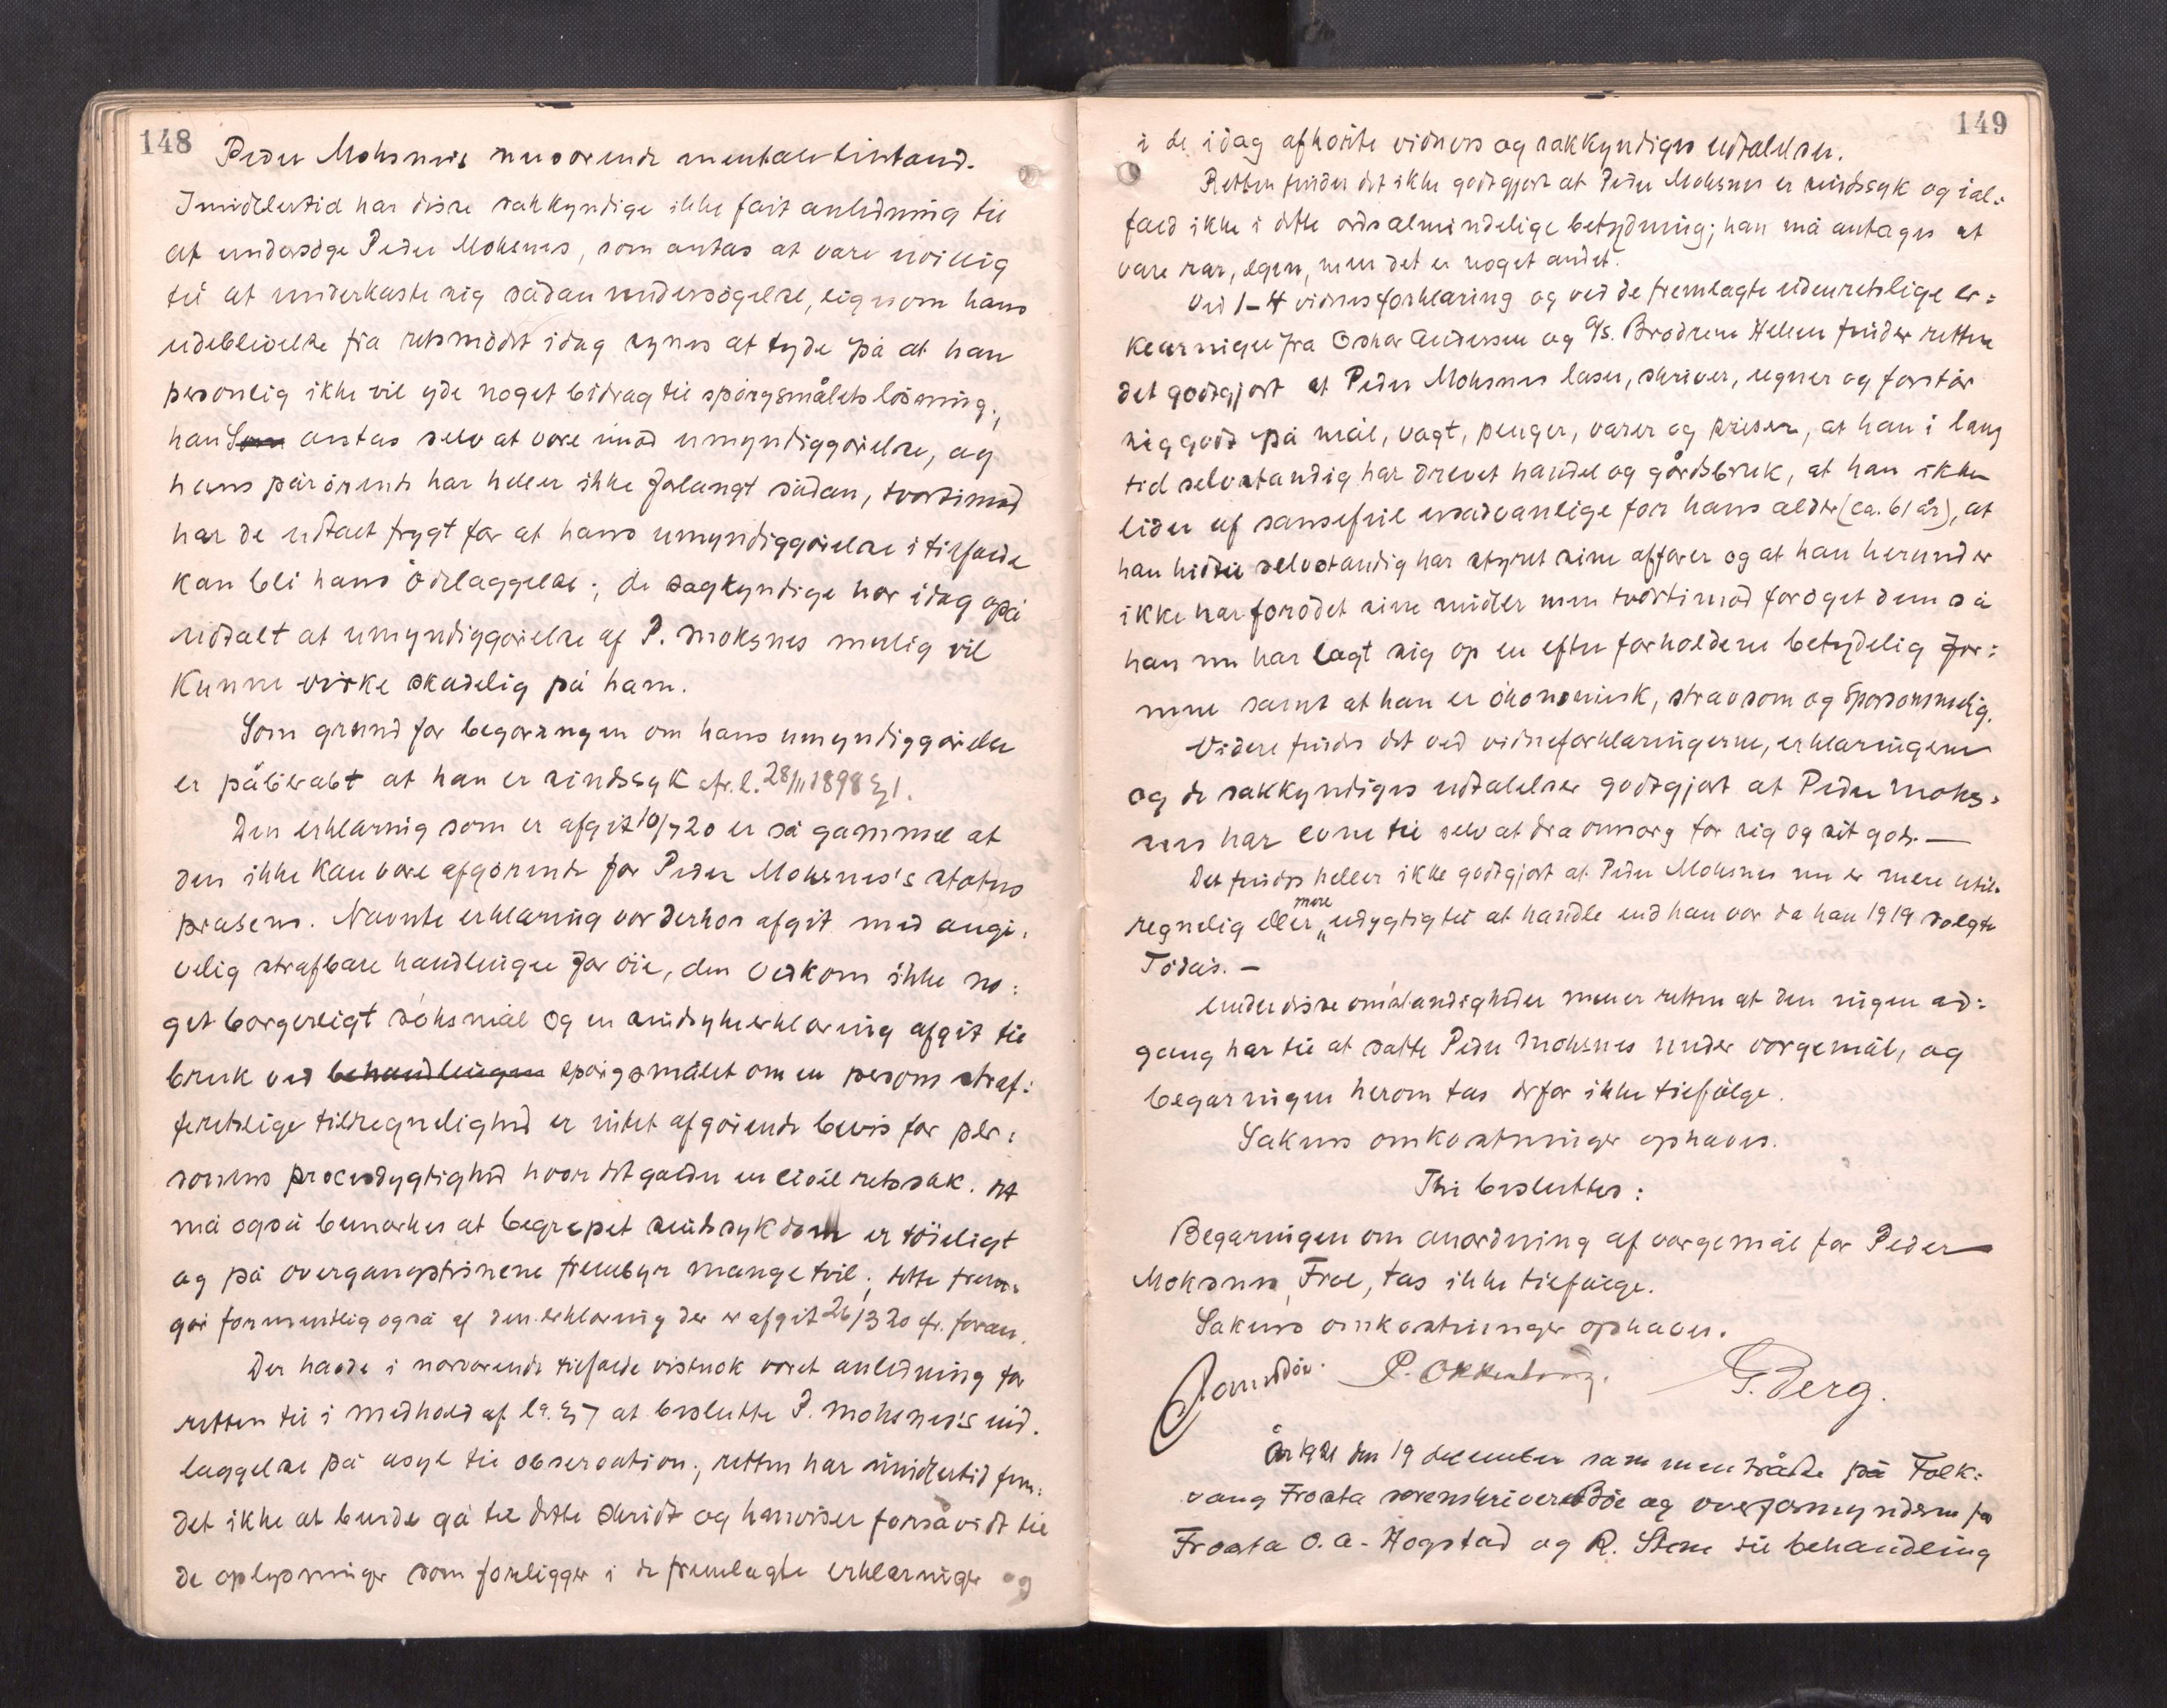 148
Peder Moksnes nuværende mentaltilstand.
Imidlertid har disse sakkyndige ikke fåit anledning til
at undersöge Peder Moksnes, som antas at være uvillig
til at underkaste sig sådan undersögelse, ligesom hans
udeblivelse fra retsmödet idag synes at tyde på at han
personlig ikke vil yde noget bidrag til spörgsmålets lösning;
han Som antas selv at være imod umyndiggörelse, og
hans pårörende har heller ikke forlangt sådan, tvertimod
har de udtalt frygt for at hans umyndiggjörelse i tilfælde
kan bli hans ödelæggelse; de sagkyndige har idag også
udtalt at umyndiggjörelse af P. Moksnes mulig vil
kunne virke skadelig på ham.
Som grund for begæringen om hans umyndiggjörelse
er påberabt at han er sindssyk cfr. l. 28/11 1898 § 1.
Den erklæring som er afgit 10/7 20 er så gammel at
den ikke kan være afgörende for Peder Moksnes's status
præsens. Nævnte erklæring var derhos afgit med angi:
velig strafbare handlinger for öie, den vedkom ikke no:
get borgerligt söksmål og en sindsykeerklæring afgit til
bruk ved behandlingen spörgsmålet om en persons straf:
feretslige tilregnelighed er intet afgörende bevis for per:
sonens procesdygtighed hvor det gælder en civil retssak. Det
må også bemærkes at begrepet sindssykdom er töieligt
og på overgangstrinene frembyr mange tvil; dette frem:
går formentlig også af den erklæring der er afgit 26/3 20 cfr. foran.
Der havde i nærværende tilfælde vistnok været anledning for
retten til i medhold af l. § 7 at beslutte P. Moksnes's ind:
læggelse på asyl til observation; retten har imidlertid fun:
det ikke at burde gå til dette skridt og henviser forsåvidt til
de oplysninger som foreligger i de fremlagte erklæringer og
149
i de idag afhörte vidners og sakkyndiges udtalelser.
Retten finder det ikke godtgjort at Peder Moksnes er sindssyk og ial:
fald ikke i dette ords almindelige betydning; han må antages at
være rar, egen, men det er noget andet.
Ved 1-4 vidnesforklaring og ved de fremlagte udenretslige er:
klæringer fra Oskar Andersen og A/s. Brödrene Hellem finder retten
det godtgjort at Peder Moksnes læser, skriver, regner og forstår
sig godt på mål, vægt, penger, varer og priser, at han i lang
tid selvstændig har drevet handel og gårdsbruk, at han ikke
lider af sansefeil usædvanlige for hans alder (ca. 61 år), at
han hidtil selvstændig har styret sine affærer og at han herunder
ikke har forödet sine midler men tvertimod foröget dem så
han nu har lagt sig op en efter forholdene betydelig for:
mue samt at han er ökonomisk, strævsom og sparsommelig.
Videre findes det ved vidneforklaringerne, erklæringerne
og de sakkyndiges udtalelser godtgjort at Peder Moks:
nes har evne til selv at dra omsorg for sig og sit gods. —
Det findes heller ikke godtgjort at Peder Moksnes nu er mere util:
regnelig eller mere udygtig til at handle end han var da han 1919 solgte
Tödås. —
Under disse omstændigheder mener retten at den ingen ad:
gang har til at sætte Peder Moksnes under værgemål, og
begæringen herom tas derfor ikke tilfölge.
Sakens omkostninger ophæves.
Thi besluttes:
Begæringen om anordning af værgemål for Peder
Moksnes, Frol, tas ikke tilfölge.
Sakens omkostninger ophæves.
P. Okkenhaug. G. Berg.
År 1921 den 19 december sammentrådte på Folk:
vang Frosta sorenskriver Böe og overformynderne for
Frosta O. A. Hogstad og R. Stene til behandling